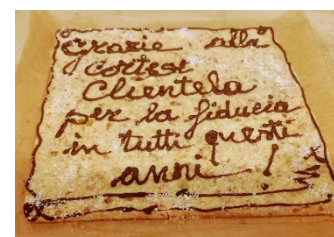 Grazie alla
cortese
Clientela
per la fiducia
in tutti questi
anni!